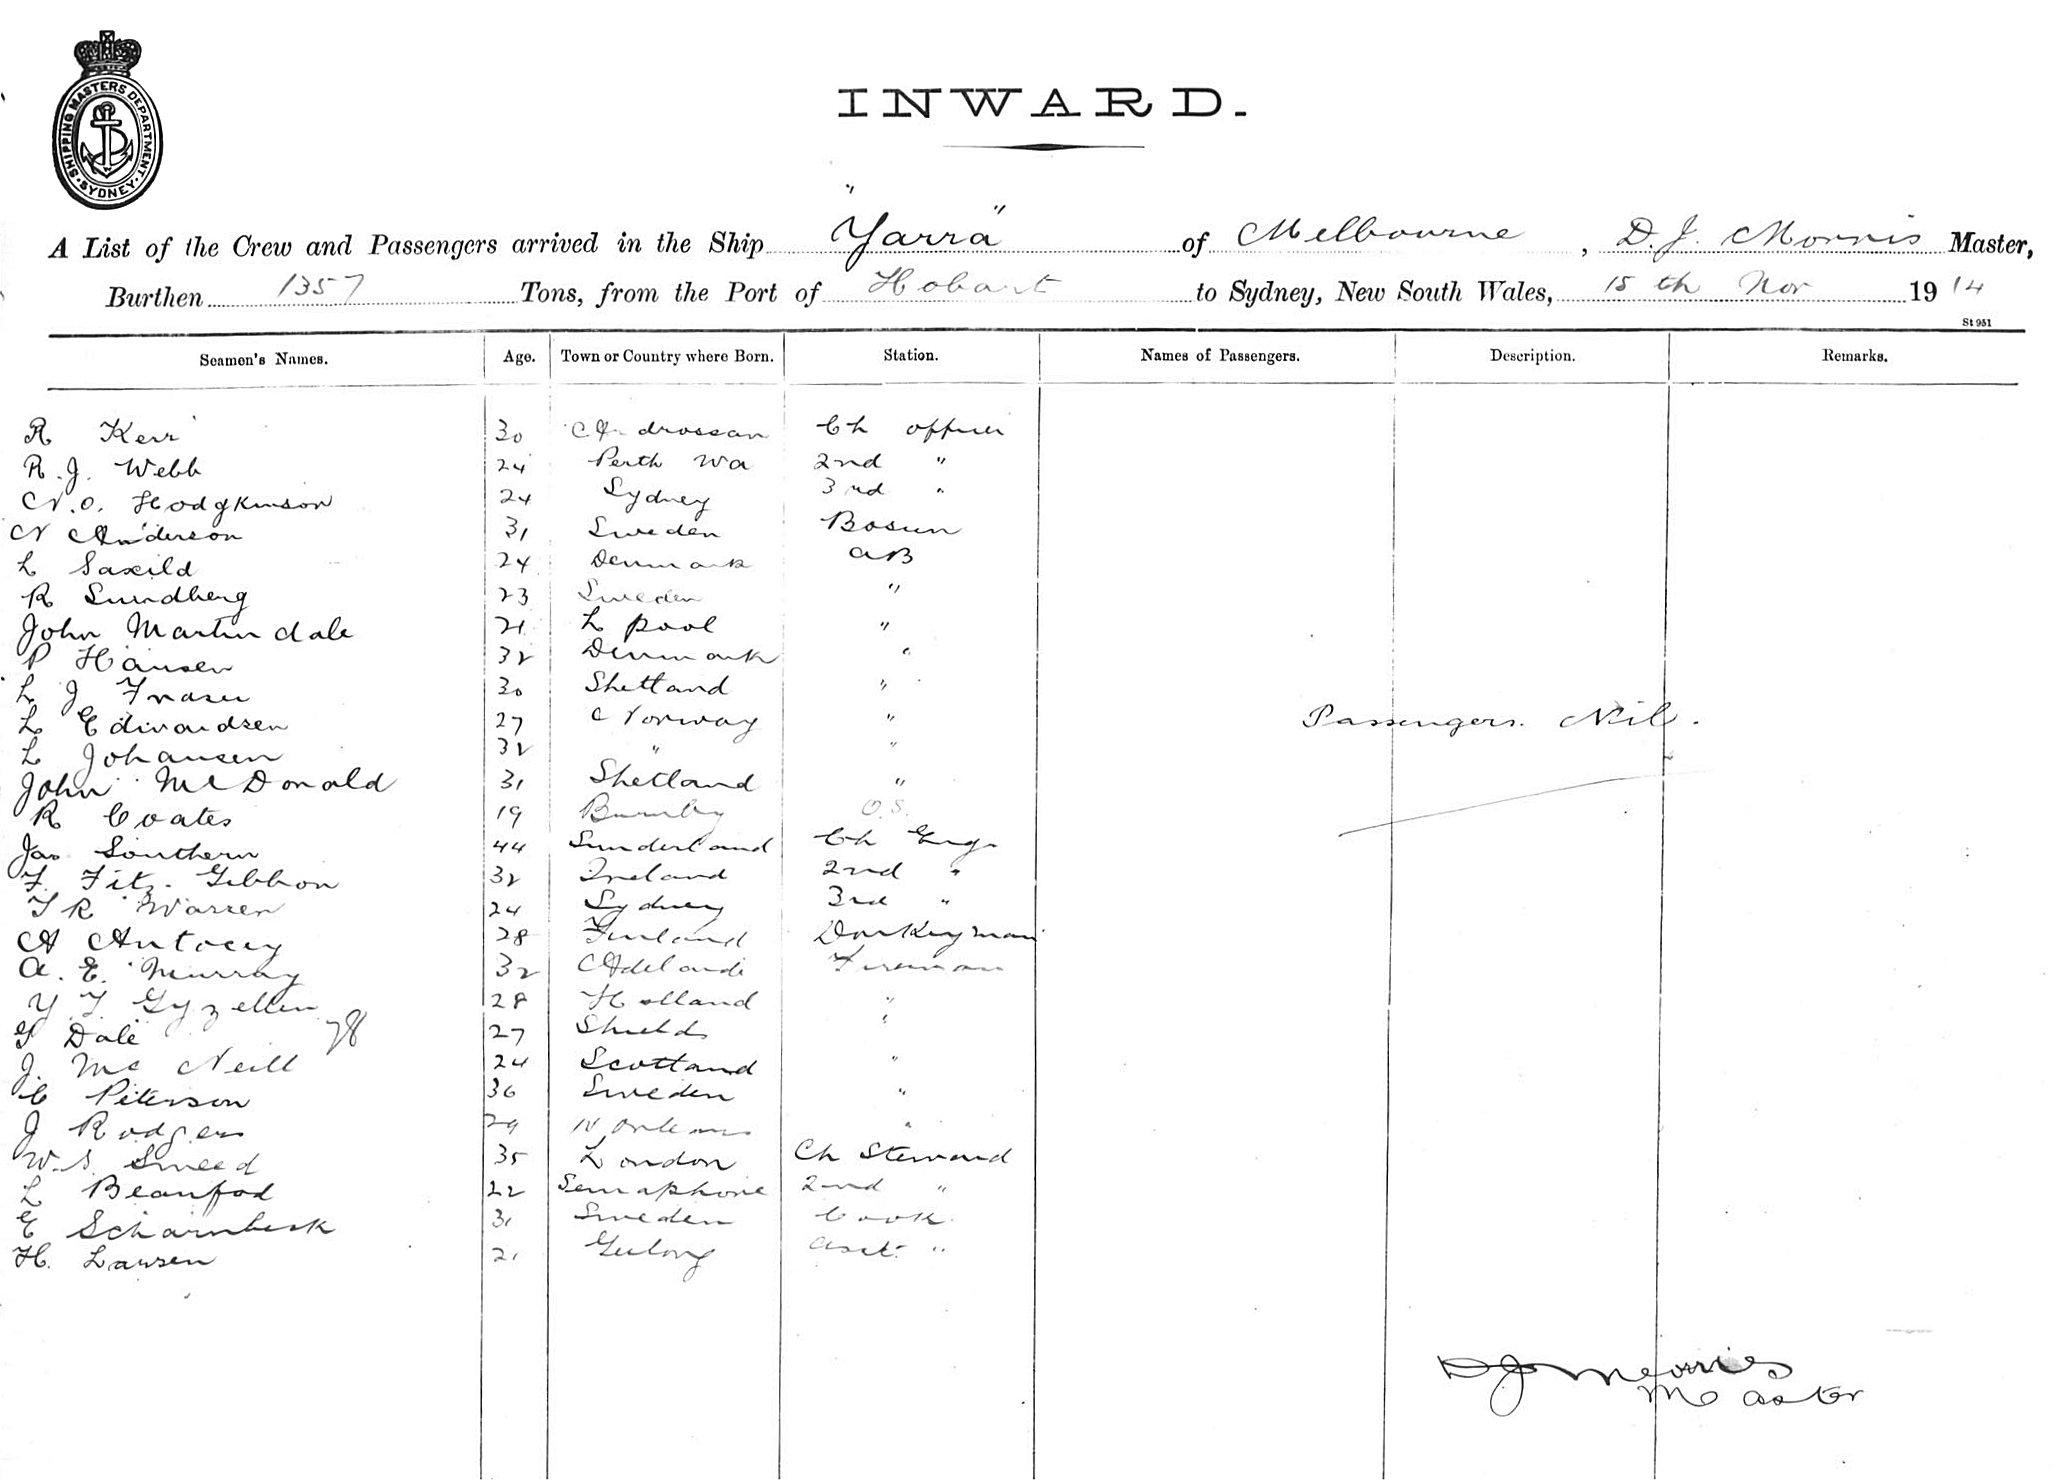 SHIPPING MASTERS DEPARTMENT · SYDNEY ·
INWARD.
A List of the Crew and Passengers arrived in the Ship "Yarra" of Melbourne, D. J. Morris Master,
Burthen 1357 Tons, from the Port of Hobart to Sydney, New South Wales, 15th Nov 1914
St 951
Seamen's Names. Age. Town or Country where Born. Station. Names of Passengers. Description. Remarks.
R Kerr 30 Ardrossan Ch officer
R. J. Webb 24 Perth Wa 2nd "
N. O. Hodgkinson 24 Sydney 3rd "
N Anderson 31 Sweden Bosun
L Saxild 24 Denmark AB
R Sundberg 23 Sweden "
John Martindale 21 L pool "
P Hansen 32 Denmark "
L J Fraser 30 Shetland "
L Edwardsen 27 Norway "
Passengers. Nil.
L Johansen 32 " "
John McDonald 31 Shetland "
R Coates 19 Burnley O.S.
Jas Southern 44 Sunderland Ch Engr
F. Fitz. Gibbon 32 Ireland 2nd "
T R Warren 24 Sydney 3rd "
A 28 Finland Donkeyman
A. E. Murray 32 Adelaide Fireman
Y. T. Gyzellen 28 Holland "
Dale 27 Shields "
J. Mc Neill 24 Scotland "
C Peterson 36 Sweden "
J Rodgers 29 N Orleans "
W. S. Smeed 35 London Ch Steward
L Beaufod 22 Semaphore 2nd "
E Scharnberk 31 Sweden Cook
H. Lawsen 21 Geelong asst. "
D J Morris
Master